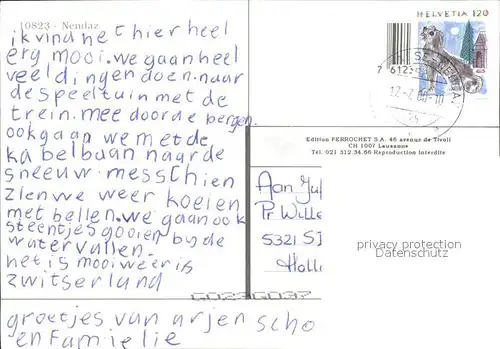 10823 - Nendaz
ik vind het hier heel
erg mooi. we gaan heel
veel dingen doen. naar
de speeltuin met de
trein. mee door de bergen.
ook gaan we met de
kabelbaan naar de
sneeuw. messchien
zien we weer koeien
met bellen. we gaan ook
steentjes gooien bij de
watervallen.
het is mooi weer is
zwitserland
groetjes van arjen Scho
en Familie
HELVETIA 120
7 6123
12-7
Edition PERROCHET S.A. 46 avenue de Tivoli
CH 1007 Lausanne
Tel. 021 312 34.66 Reproduction interdite
Aan Juf
Pr Wille
5321 S
Holl
privacy protection
Datenschutz